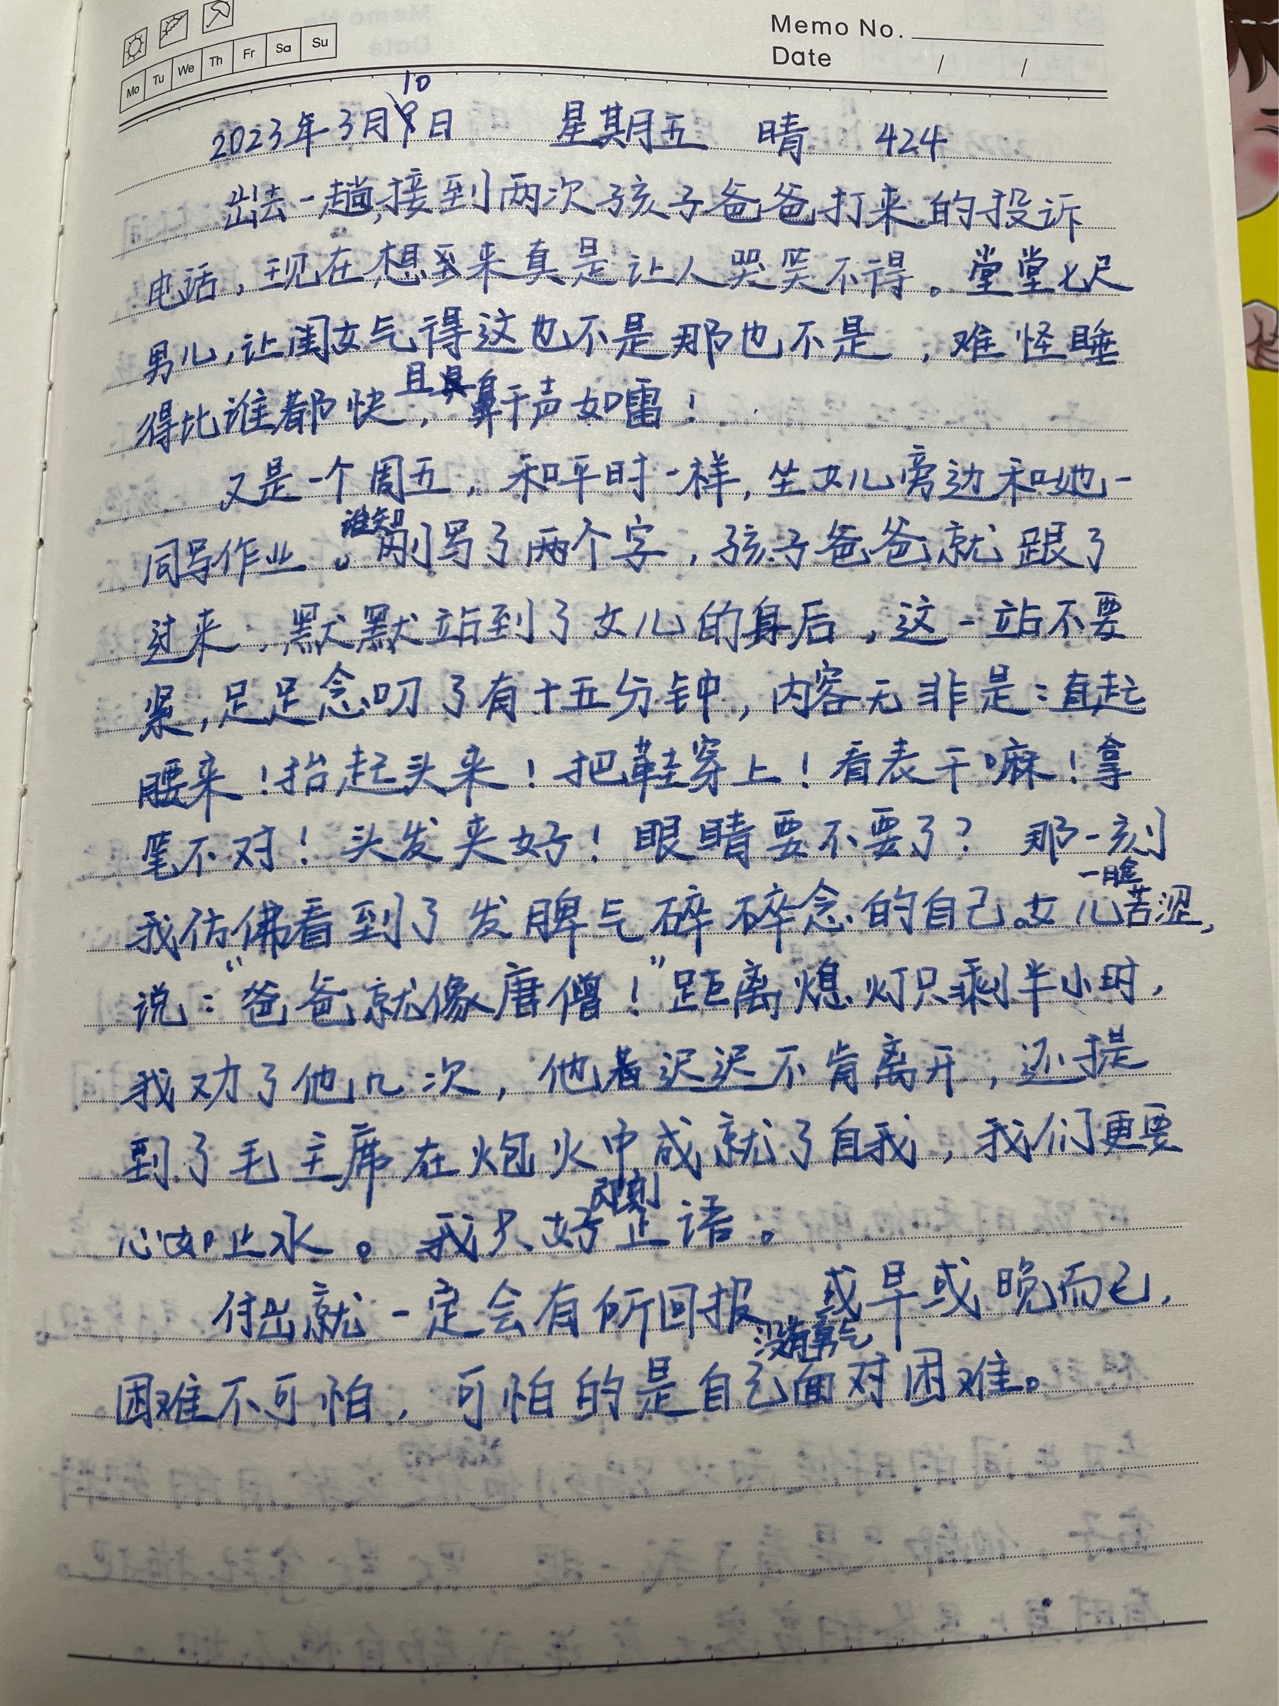 Memo No.
Mo Tu We Th Fr Sa Su
Date / /
2023年3月10日 星期五 晴 424
出去一趟,接到两次孩子爸爸打来的投诉
电话,现在想来真是让人哭笑不得。堂堂七尺
男儿,让闺女气得这也不是那也不是,难怪睡
得比谁都快,且鼾声如雷!
又是一个周五,和平时一样,坐女儿旁边和她一
同写作业。谁知刚写了两个字,孩子爸爸就跟了
过来,默默站到了女儿的身后,这一站不要
紧,足足念叨了有十五分钟,内容无非是:直起
腰来!抬起头来!把鞋穿上!看表干嘛!拿
笔不对!头发夹好!眼睛要不要了?那一刻
我仿佛看到了发脾气碎碎念的自己。女儿一脸苦涩,
说:“爸爸就像唐僧!”距离熄灯只剩半小时,
我劝了他几次,他着迟迟不肯离开,还提
到了毛主席在炮火中成就了自我,我们更要
心如止水。我只好即刻止语。
付出就一定会有所回报,或早或晚而已,
困难不可怕,可怕的是自己没有勇气面对困难。